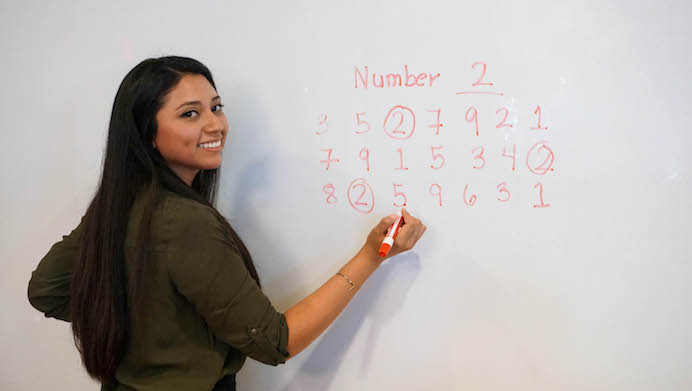 Number 2
3 5 2 7 9 2 1
7 9 1 5 3 4 2
8 2 5 9 6 3 1